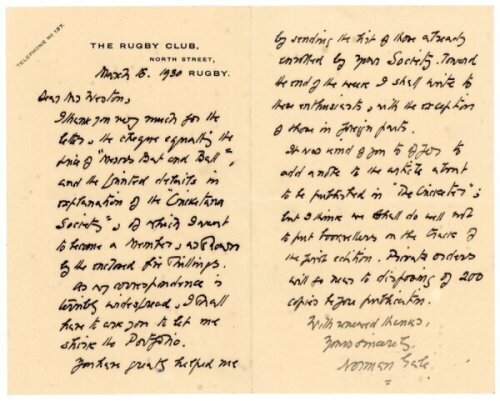 TELEPHONE NO. 137.
THE RUGBY CLUB,
NORTH STREET,
March 15. 1930 RUGBY.
Dear Mr Weston,
I thank you very much for the
letter, the cheque equalling the
price of "Messrs Bat and Ball",
and the printed details in
explanation of the "Cricketana
Society", of which I want
to become a Member, as shown
by the enclosed five shillings.
As my correspondence is
terribly widespread, I shall
have to ask you to let me
shirk the Portfolio.
You have greatly helped me
by sending the list of those already
enrolled by your Society. Toward
the end of the week I shall write to
these enthusiasts, with the exception
of those in foreign parts.
It was kind of you to offer to
add a note to the article about
to be published in "The Cricketer";
but I think we shall do well not
to put booksellers on the track of
the first edition. Private orders
will go near to disposing of 200
copies before publication.
With renewed thanks,
Yours sincerely,
Norman Gale.